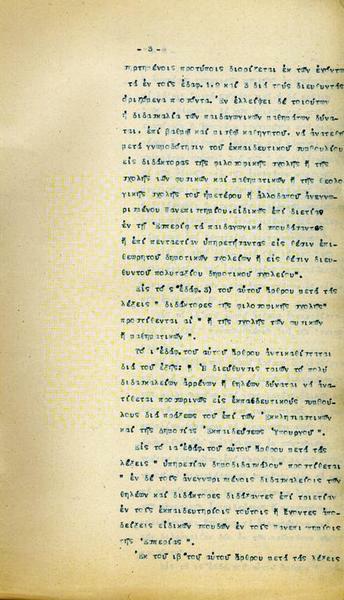 - 3 -
ρτημένοις προτύποις διορίζεται ἐκ τῶν ἐχόντων
τά ἐν τοῖς ἐδαφ. 1, 2 καί 3 διά τούς διευθυντάς
ὁριζόμενα προσόντα. Ἐν ἐλλείψει δέ τοιούτων
ἡ διδασκαλία τῶν παιδαγωγικῶν μαθημάτων δύνα-
ται, ἐπί βαθμῷ καί μισθῷ καθηγητοῦ, νά ἀνατεθῇ
μετά γνωμοδότησιν τοῦ ἐκπαιδευτικοῦ συμβουλίου
εἰς διδάκτορας τῆς φιλοσοφικῆς σχολῆς ἤ τῆς
σχολῆς τῶν φυσικῶν καί μαθηματικῶν ἤ τῆς θεολο-
γικῆς σχολῆς τοῦ ἡμετέρου ἤ ἀλλοδαποῦ ἀνεγνω-
ρισμένου πανεπιστημίου, εἰδικῶς ἐπί διετίαν
ἐν τῇ Ἑσπερίᾳ τά παιδαγωγικά σπουδάσαντας
ἤ ἐπί πενταετίαν ὑπηρετήσαντας εἰς θέσιν ἐπι-
θεωρητοῦ δημοτικῶν σχολείων ἤ εἰς θέσιν διευ-
θυντοῦ πολυταξίου δημοτικοῦ σχολείου".
Εἰς τό ἐδάφ. 3) τοῦ αὐτοῦ ἄρθρου μετά τάς
λέξεις " διδάκτορες τῆς φιλοσοφικῆς σχολῆς"
προστίθενται αἱ " ἤ τῆς σχολῆς τῶν φυσικῶν
ἤ μαθηματικῶν ".
Τό ι ἐδάφ. τοῦ αὐτοῦ ἄρθρου ἀντικαθίσταται
διά τοῦ ἑξῆς: " Ἡ διεύθυνσις τριῶν τό πολύ
διδασκαλείων ἀρρένων ἤ θηλέων δύναται νά ἀνα-
τίθεται προσωρινῶς εἰς ἐκπαιδευτικούς συμβού-
λους διά πράξεως τοῦ ἐπί τῶν Ἐκκλησιαστικῶν
καί τῆς δημοσίας Ἐκπαιδεύσεως Ὑπουργοῦ ".
Εἰς τό ια ἐδάφ. τοῦ αὐτοῦ ἄρθρου μετά τάς
λέξεις " ὑπηρεσίαν δημοδιδασκάλου" προστίθεται
" ἐν δέ τοῖς ἀνεγνωρισμένοις διδασκαλείοις τῶν
θηλέων καί διδάκτορες διδάξαντες ἐπί τριετίαν
ἐν τοῖς ἐκπαιδευτηρίοις τούτοις ἤ ἔχοντες ἀπο-
δείξεις εἰδικῶν σπουδῶν ἐν τοῖς πανεπιστημίοις
τῆς Ἑσπερίας ".
Ἐκ τοῦ ιβ τοῦ αὐτοῦ ἄρθρου μετά τάς λέξεις